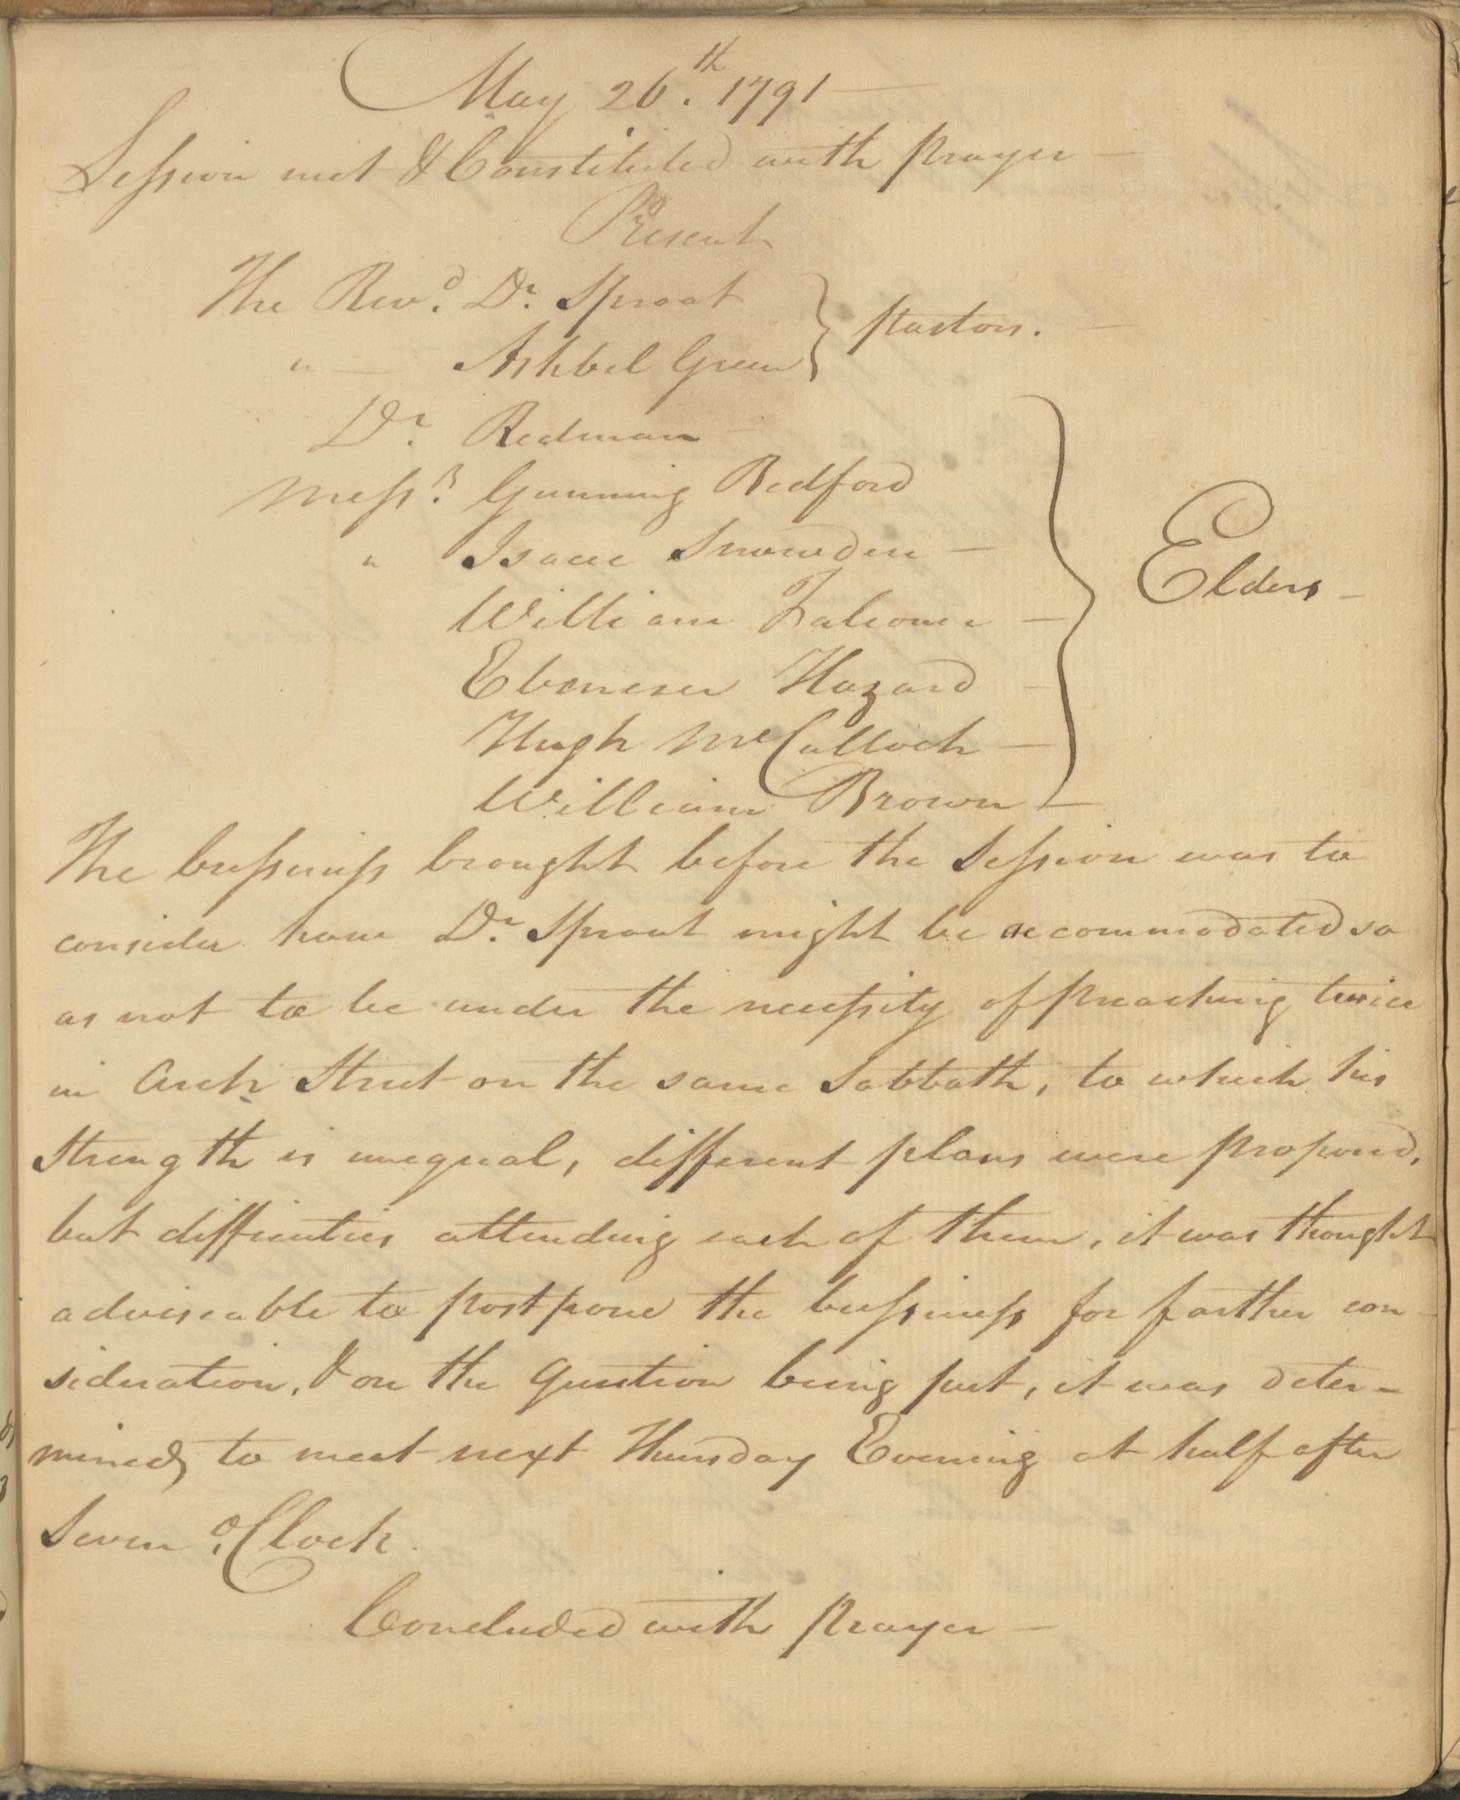 May 26.th 1791
Session met & Constituted with prayer
Present
The Revd. Dr. Sproat } pastors.
" — Ashbel Green
Dr. Redman
Messrs. Gunning Bedford
" Isaac Snowden —
William Falconer —
Elders —
Ebenezer Hazard
Hugh McCulloch —
William Brown —
The bussiness brought before the Session was to
consider how Dr. Sproat might be accommodated so
as not to be under the necessity of preaching twice
in Arch Street on the same Sabbath, to which his
strength is unequal, different plans were propos'd,
but difficulties attending each of them, it was thought
adviseable to postpone the bussiness for farther con
sideration, & on the Question being put, it was deter-
mined, to meet next Thursday Evening at half after
Seven o'Clock.
Concluded with prayer —